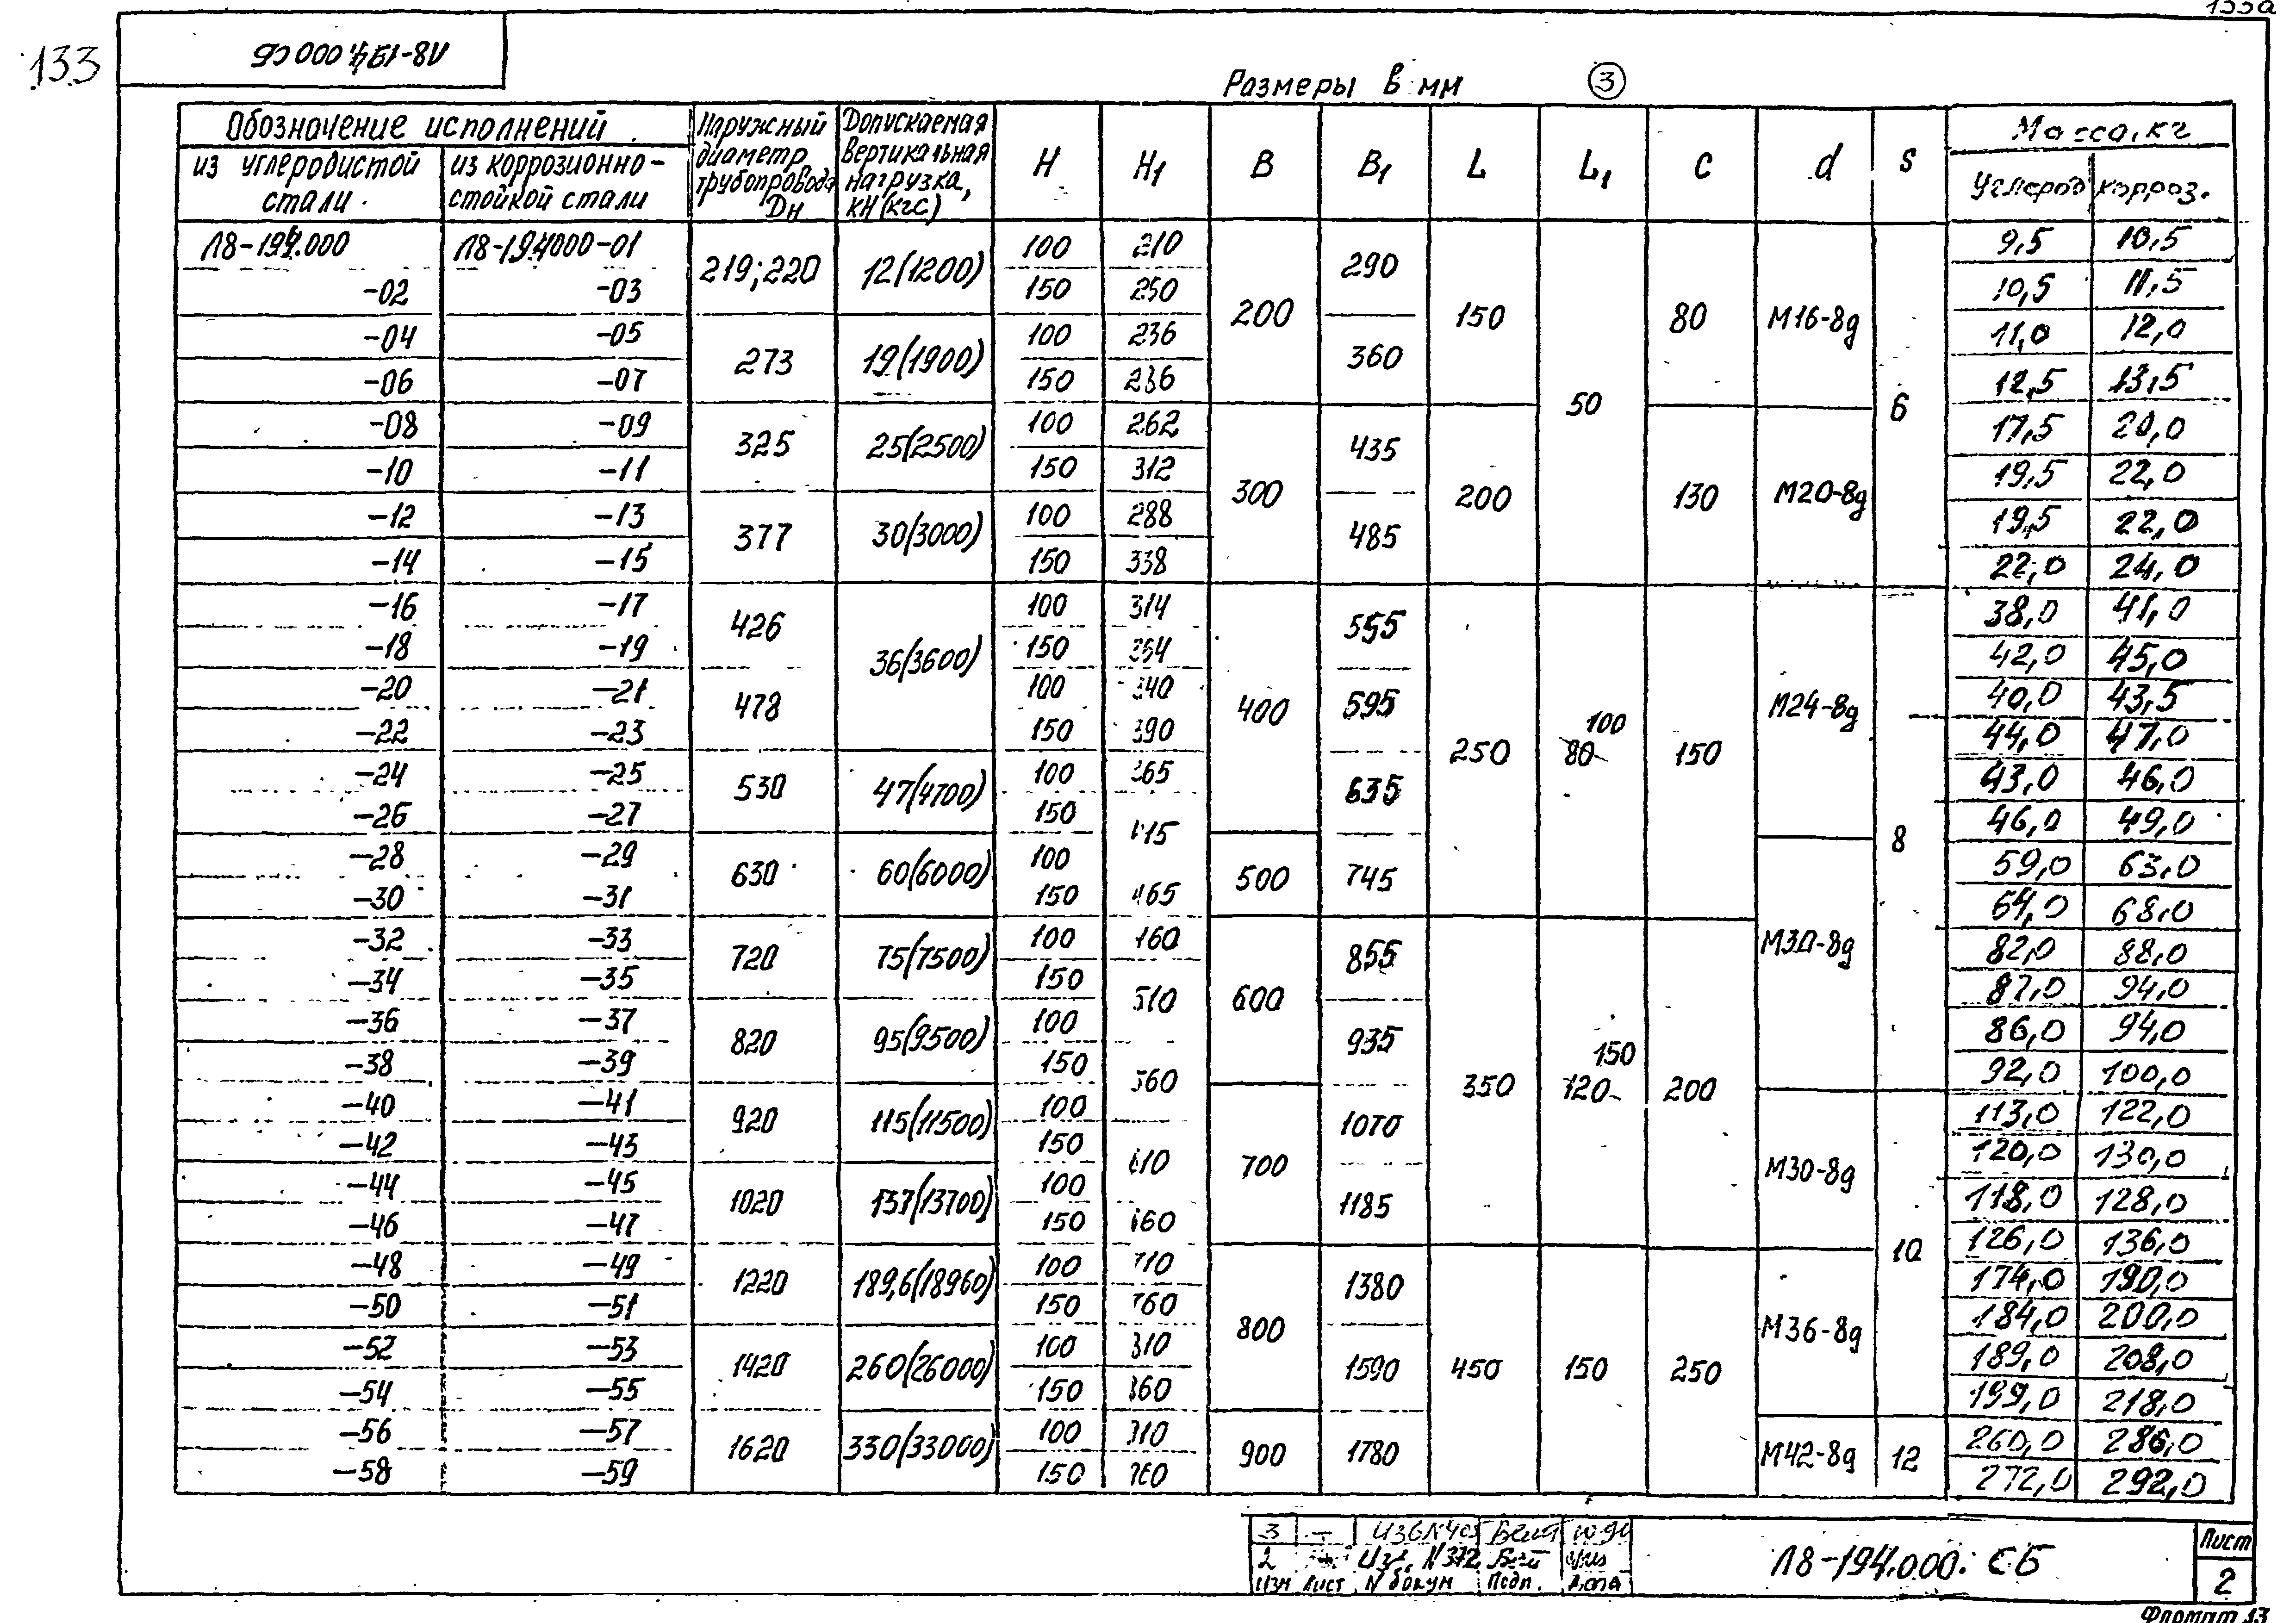 133а
133
Л8-194.000 СБ
Размеры в мм ③
Обозначение исполнений
из углеродистой стали
из коррозионно-стойкой стали
Наружный диаметр трубопровода Dн
Допускаемая вертикальная нагрузка, кН(кгс)
H H1 B B1 L L1 C d S
Масса, кг
Углерод корроз.
Л8-194.000 Л8-194000-01 219;220 12(1200) 100 210 200 290 150 50 80 М16-8g 6 9,5 10,5
-02 -03 150 250 10,5 11,5
-04 -05 273 19(1900) 100 236 360 11,0 12,0
-06 -07 150 236 12,5 13,5
-08 -09 325 25(2500) 100 262 300 435 200 130 М20-8g 17,5 20,0
-10 -11 150 312 19,5 22,0
-12 -13 377 30(3000) 100 288 485 19,5 22,0
-14 -15 150 338 22,0 24,0
-16 -17 426 36(3600) 100 314 400 555 250 100 80 150 М24-8g 8 38,0 41,0
-18 -19 150 364 42,0 45,0
-20 -21 478 100 340 595 40,0 43,5
-22 -23 150 390 44,0 47,0
-24 -25 530 47(4700) 100 365 635 43,0 46,0
-26 -27 150 415 46,0 49,0
-28 -29 630 60(6000) 100 500 745 М30-8g 59,0 63,0
-30 -31 150 465 64,0 68,0
-32 -33 720 75(7500) 100 460 600 855 350 150 120 200 82,0 88,0
-34 -35 150 510 87,0 94,0
-36 -37 820 95(9500) 100 935 86,0 94,0
-38 -39 150 560 92,0 100,0
-40 -41 920 115(11500) 100 700 1070 М30-8g 10 113,0 122,0
-42 -43 150 610 120,0 130,0
-44 -45 1020 137(13700) 100 1185 118,0 128,0
-46 -47 150 660 126,0 136,0
-48 -49 1220 189,6(18960) 100 710 800 1380 450 150 250 М36-8g 174,0 190,0
-50 -51 150 760 184,0 200,0
-52 -53 1420 260(26000) 100 810 1590 189,0 208,0
-54 -55 150 860 199,0 218,0
-56 -57 1620 330(33000) 100 900 1780 М42-8g 12 260,0 286,0
-58 -59 150 272,0 292,0
3 –
2
Изм Лист N докум Подп. Дата
Л8-194.000. СБ
Лист
2
Формат